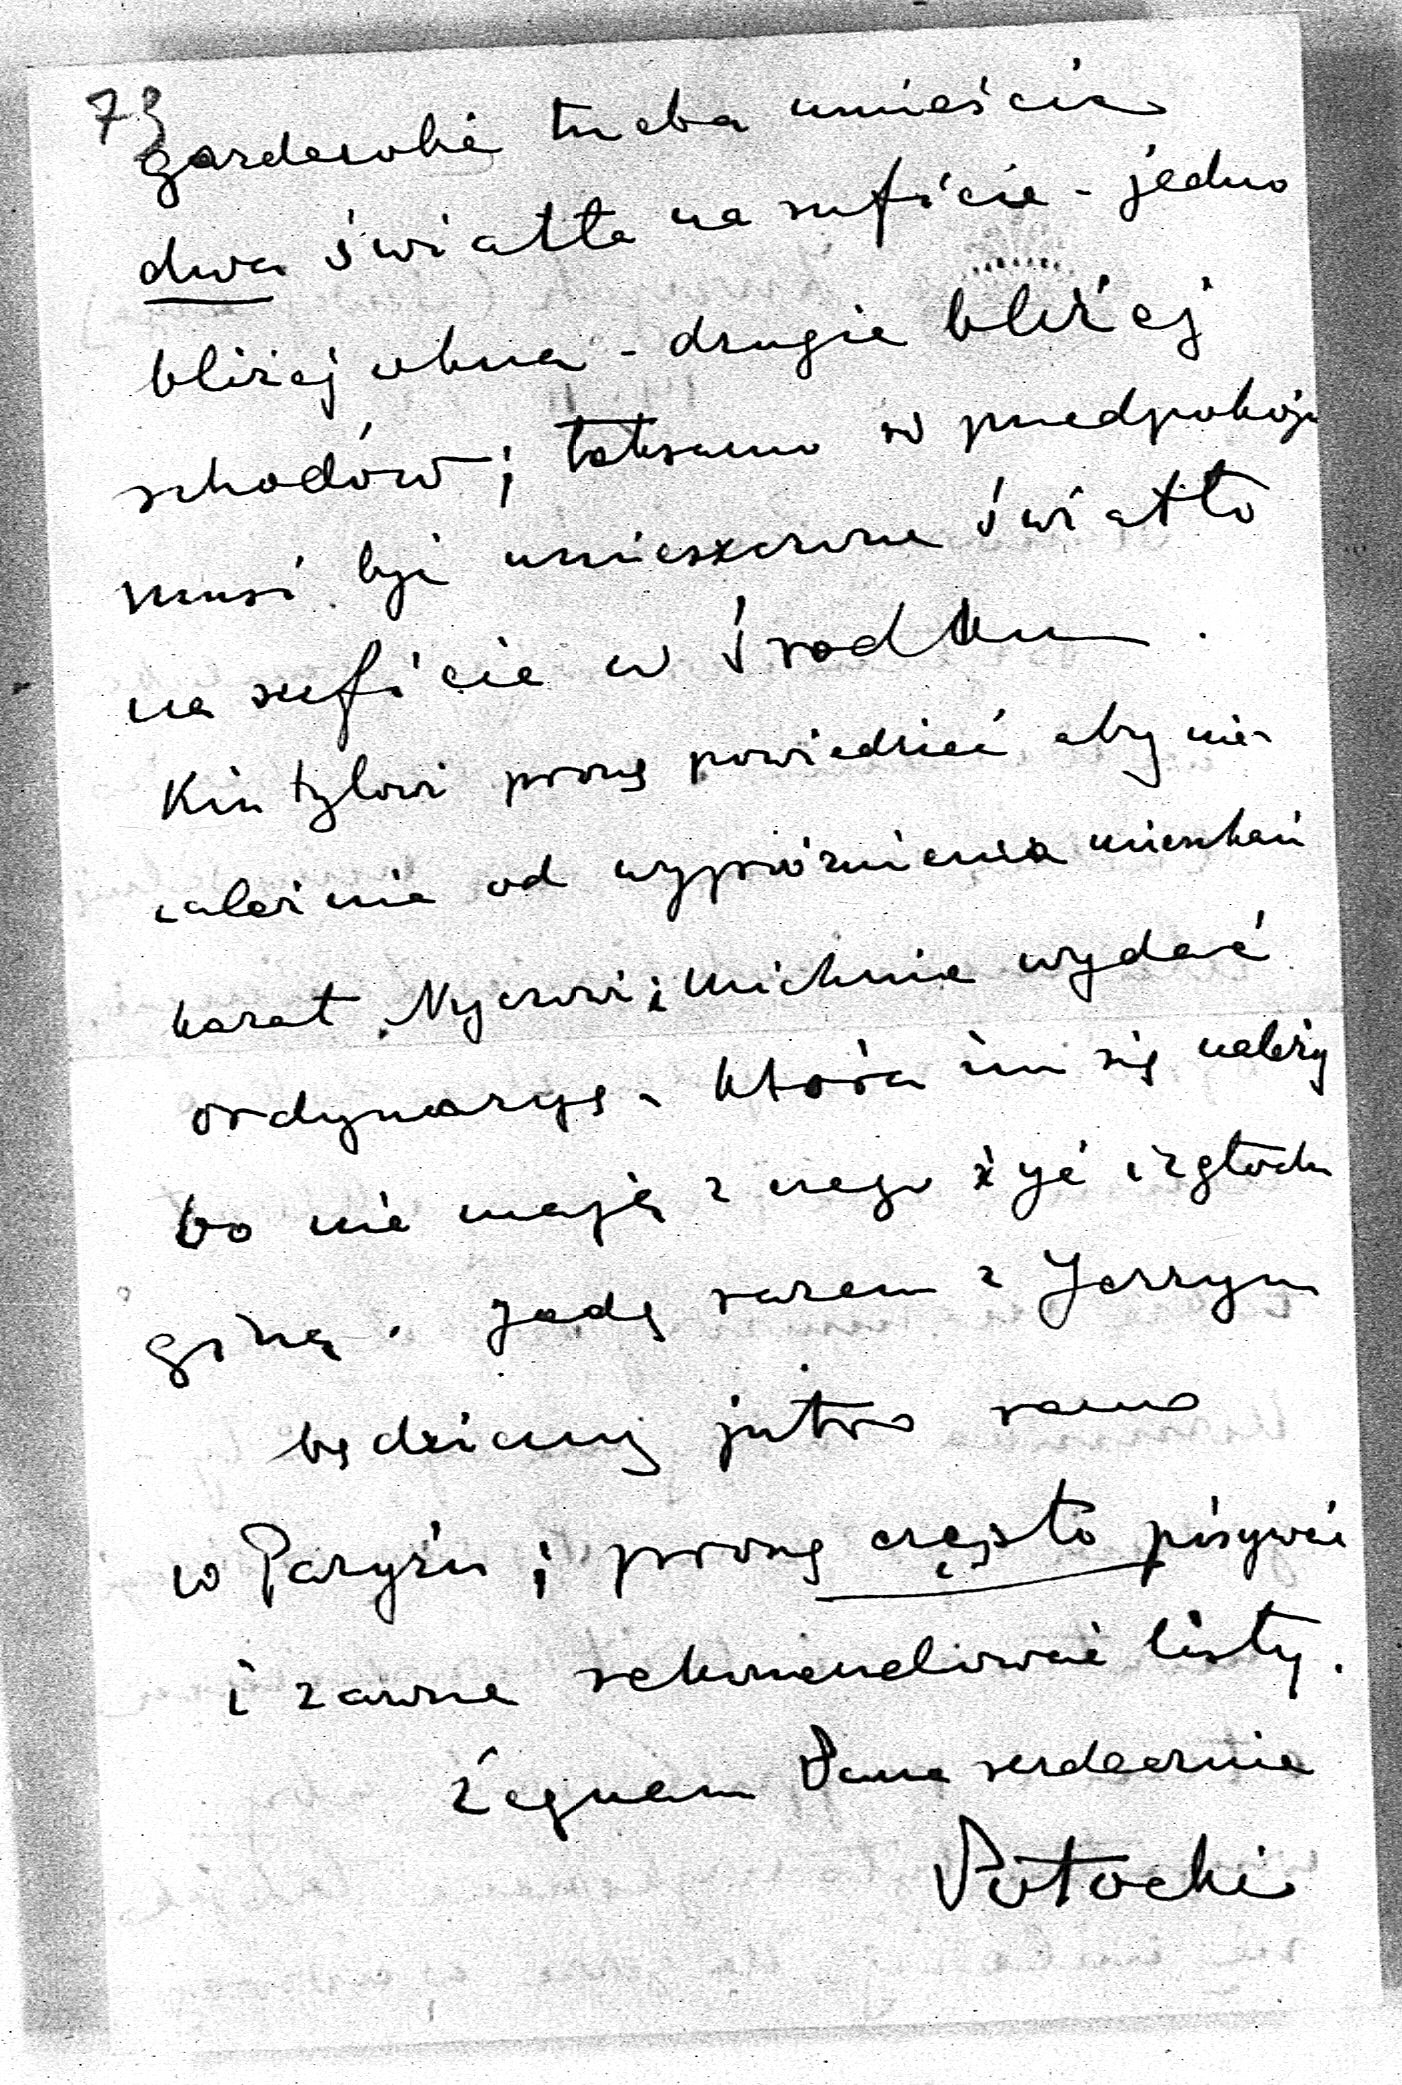 73
garderobie trzeba umieścić
dwa światła na suficie - jedno
bliżej okna - drugie bliżej
schodów; taksamo w przedpokoju
musi być umieszczone światło
na suficie w środku.
Kintzlowi proszę powiedzieć aby nie-
zależnie od wypróżnienia mieszkań
kazał Nyczowi i Michnie wydać
ordynaryę, która im się należy
bo nie mają z czego żyć i z głodu
giną. Jadę razem z Jerzym
będziemy jutro rano
w Paryżu; proszę często pisywać
i zawsze rekomendować listy.
Żegnam Pana serdecznie
Potocki